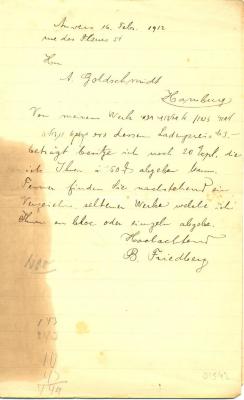 Anvers 16. Febr. 1912
rue des
Herrn
A. Goldschmidt
Hamburg
Von meinem Werk
dessen Ladenpreis M 3.-
beträgt besitze ich noch 20 Expl. die
ich Ihnen à 50 abgeben kann.
Ferner finden Sie nachstehend ein
Verzeichn. seltener Werke welche ich
Ihnen en bloc oder einzeln abgebe.
Hochachtend
B. Friedberg